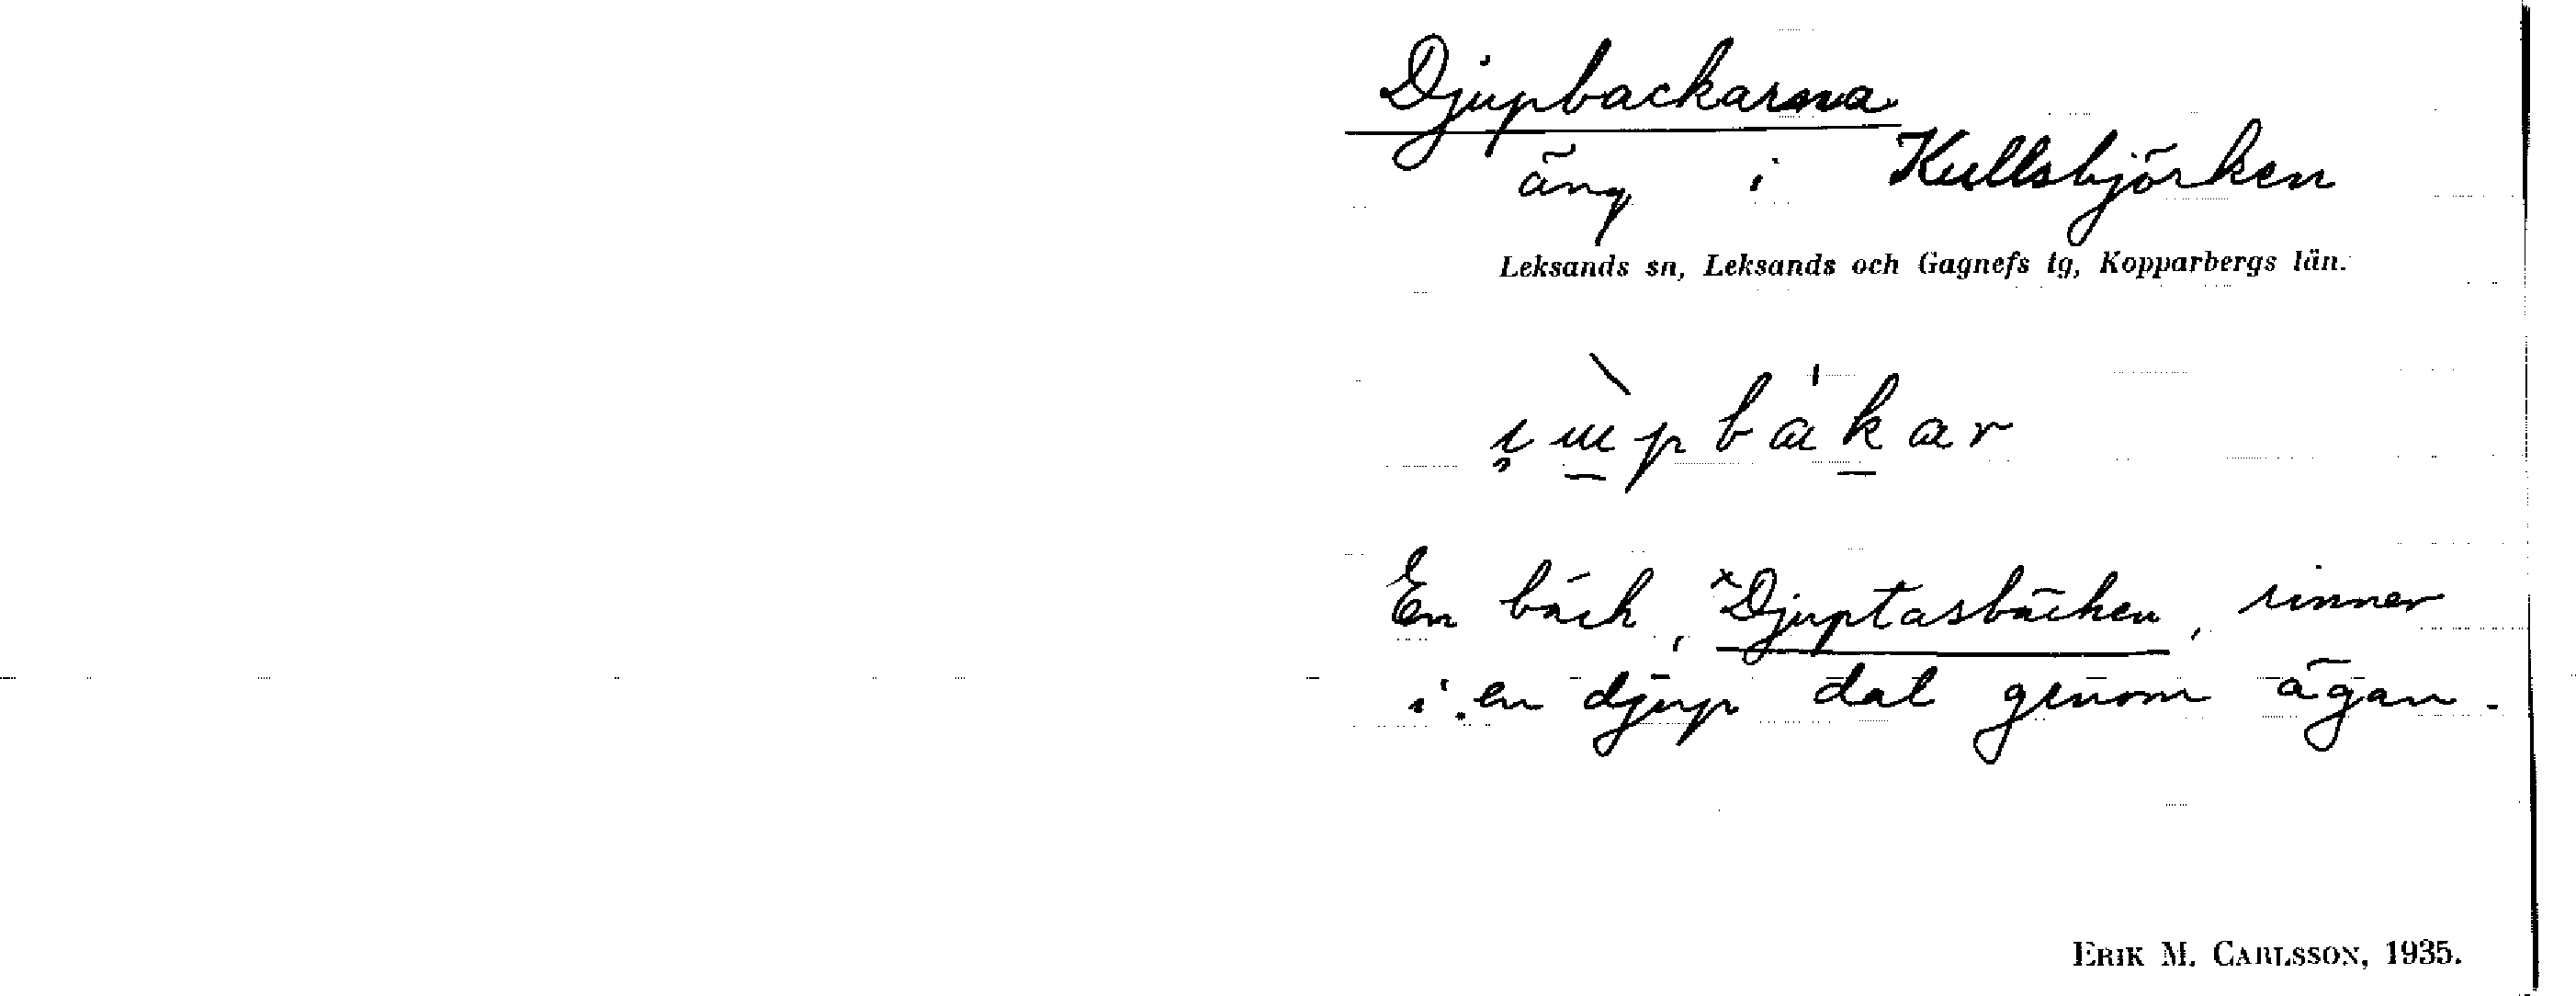 Djupbackarna
äng i Kullsbjörken
Leksands sn, Leksands och Gagnefs tg, Kopparbergs län.
En bäck, ˣDjuptasbäcken, rinner
i en djup dal genom ägan.
ERIK M. CARLSSON, 1935.